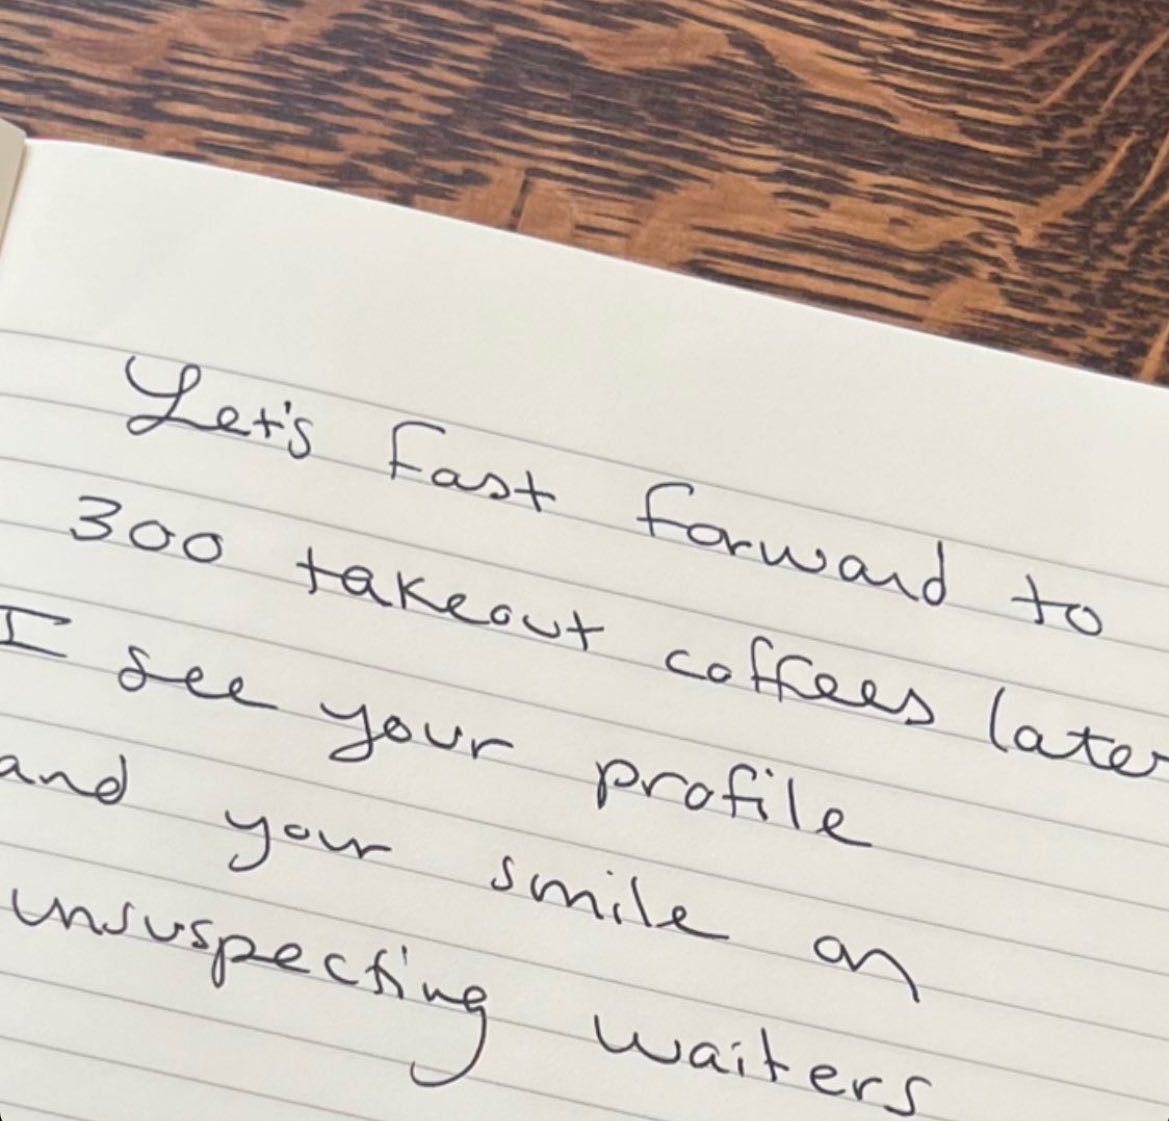 Let's fast forward to
300 takeout coffees later
I see your profile
and your smile on
unsuspecting waiters